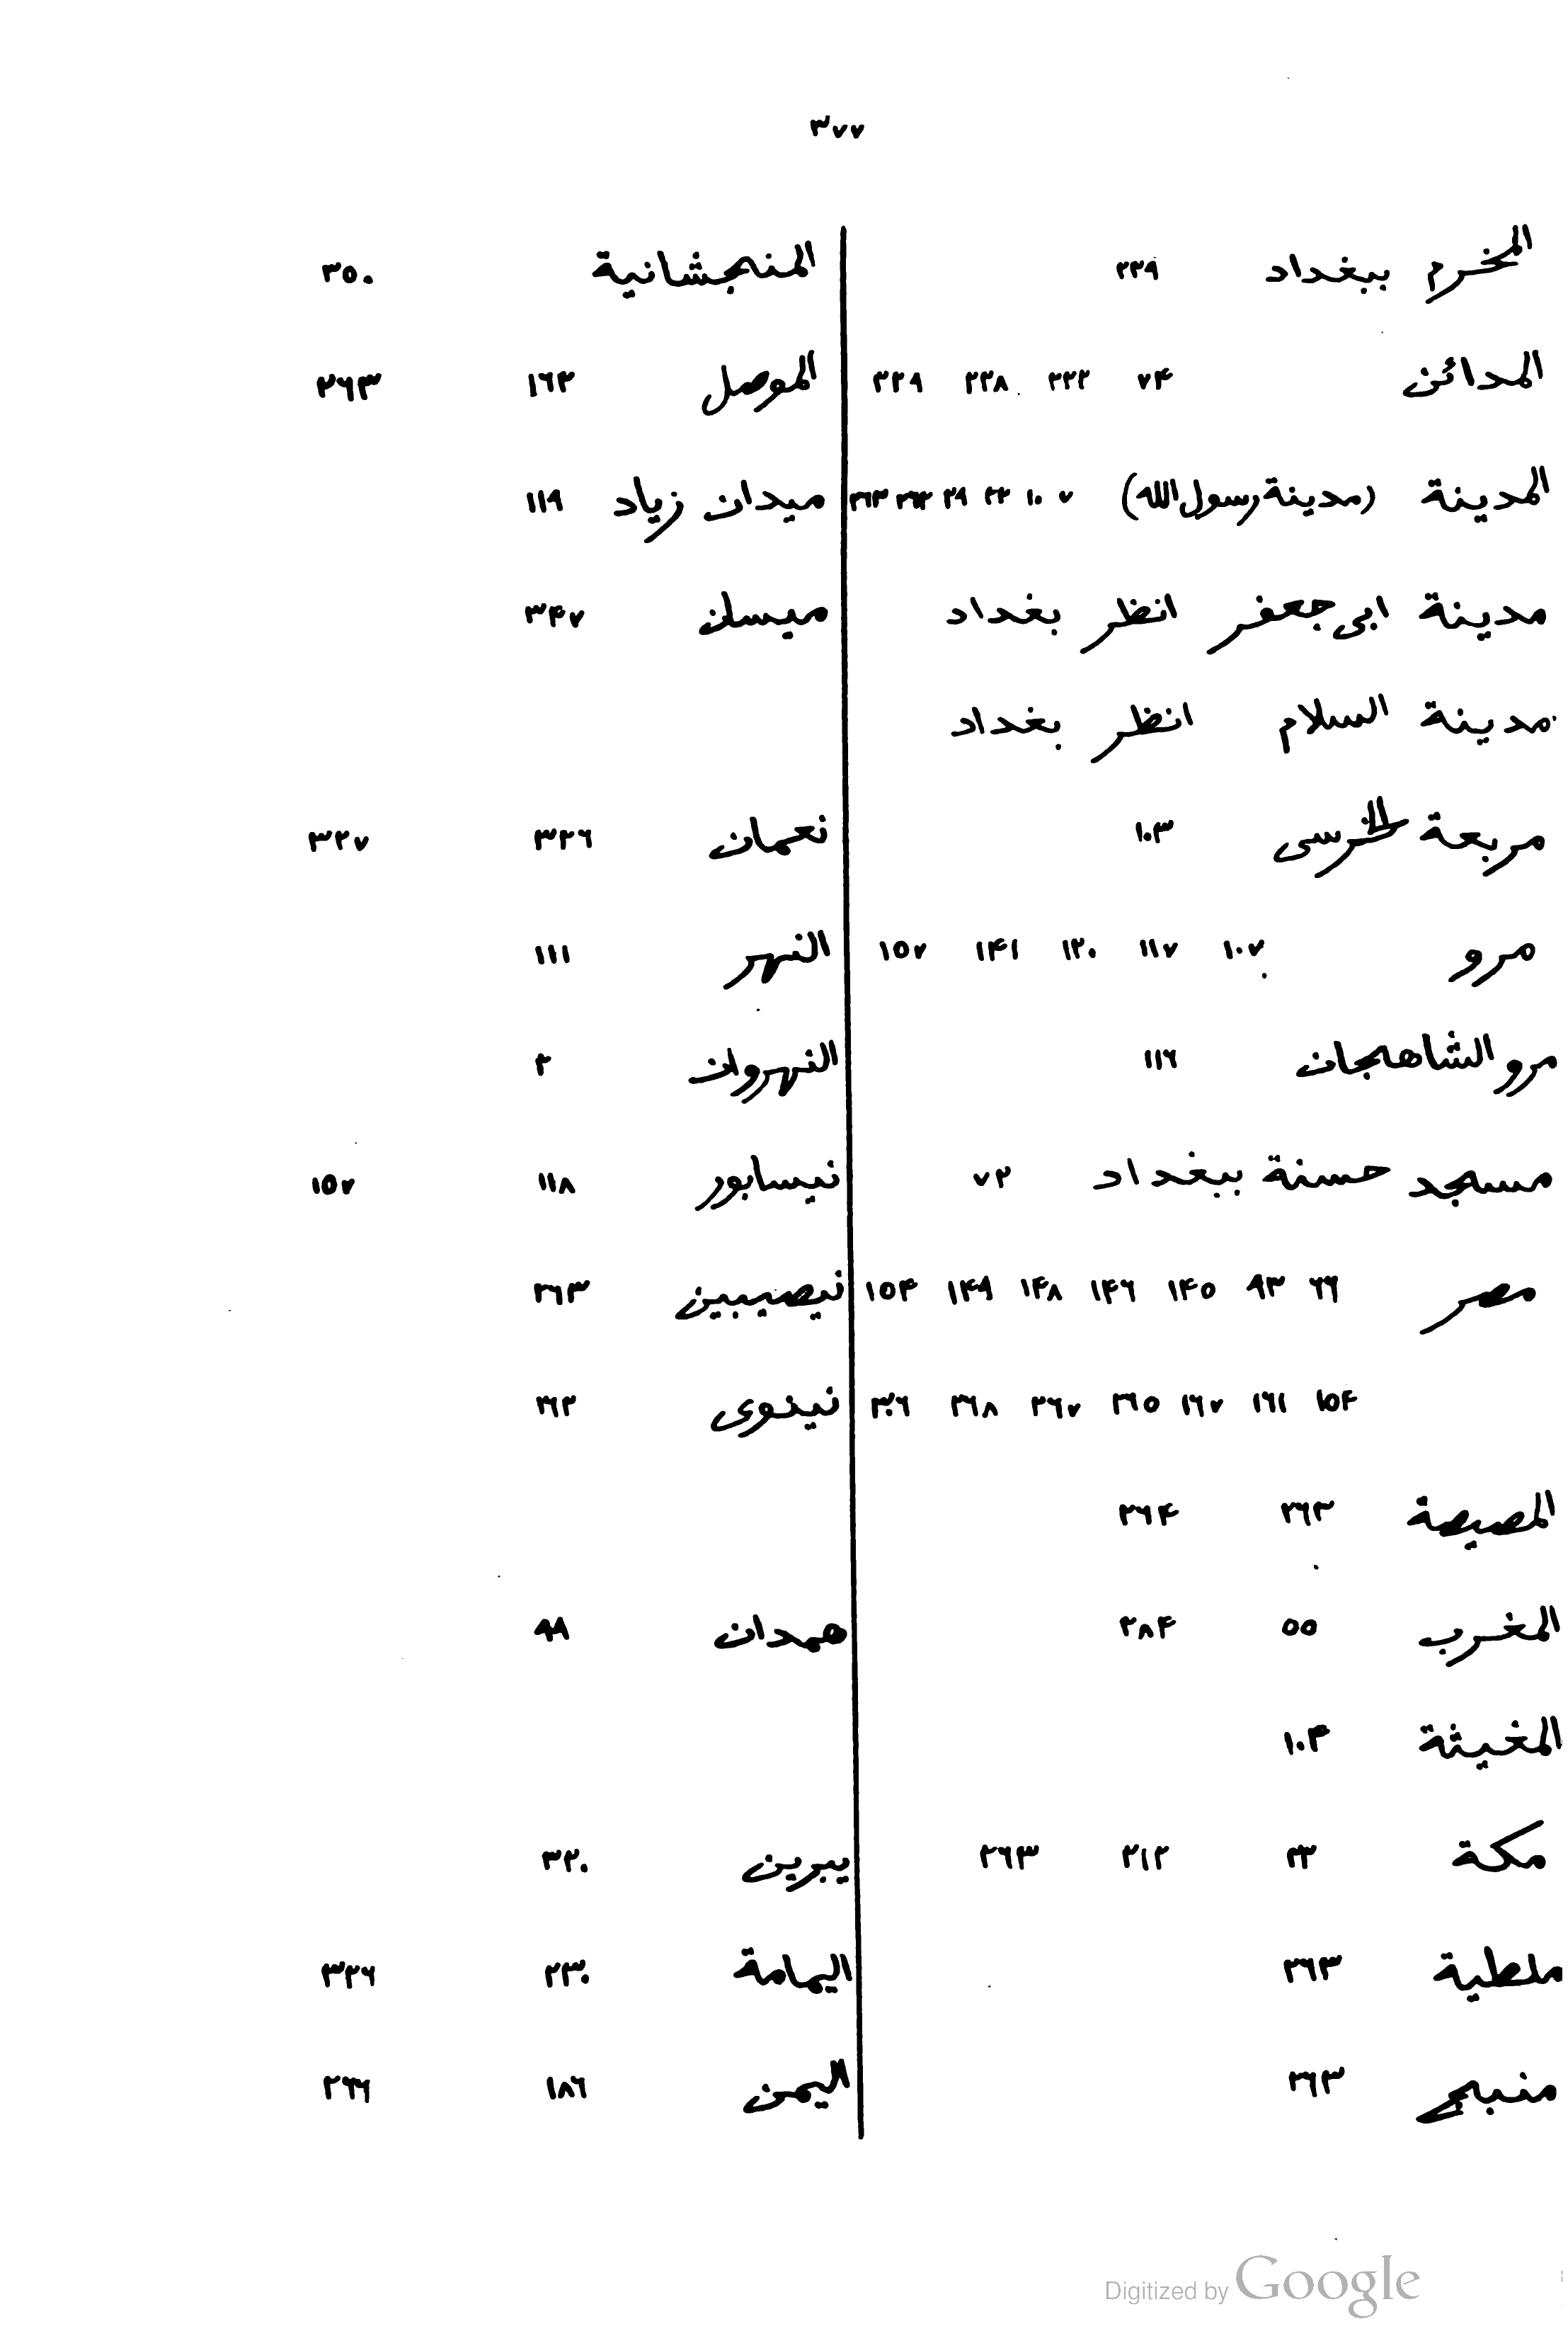 ٣٧٧
المخرم ببغداد ٢٣٩
المدائن ٧۴ ٢٢٢ ٢٢٨ ٢٢٩
المدينة (مدينة رسول الله) ٧ ١٠ ٢٢ ٢٩ ٢٦٢ ٢٦٣
مدينة ابى جعفر انظر بغداد
مدينة السلام انظر بغداد
مربعة الخرسى ١٠٣
مرو ١٠٧ ١١٧ ١٢٠ ١۴١ ١٥٧
مرو الشاهجان ١١٦
مسجد حسنة ببغداد ٧٢
مصر ٦٦ ٩٣ ١۴٥ ١۴٦ ١۴٨ ١۴٩ ١٥۴
١٥۴ ١٦١ ١٦٧ ٢٦٥ ٢٦٧ ٢٦٨ ٣٠٦
المصيصة ٢٦٣ ٢٦۴
المغرب ٥٥ ٢٨۴
المغيثة ١٠۴
مكة ٢٣ ٢١٢ ٢٦٣
ملطية ٢٦٣
منبج ٢٦٣
المنجشانية ٣٥٠
الموصل ١٦٢ ٢٦٣
ميدان زياد ١١٩
ميسان ٣۴٧
نعمان ٣٢٦ ٣٢٧
النهر ١١١
النهروان ٢
نيسابور ١١٨ ١٥٧
نصيبين ٢٦٣
نينوى ٢٦٢
همدان ٩٩
يبرين ٣٢٠
اليمامة ٢٣٠ ٣٢٦
اليمن ١٨٦ ٢٦٦
Digitized by Google